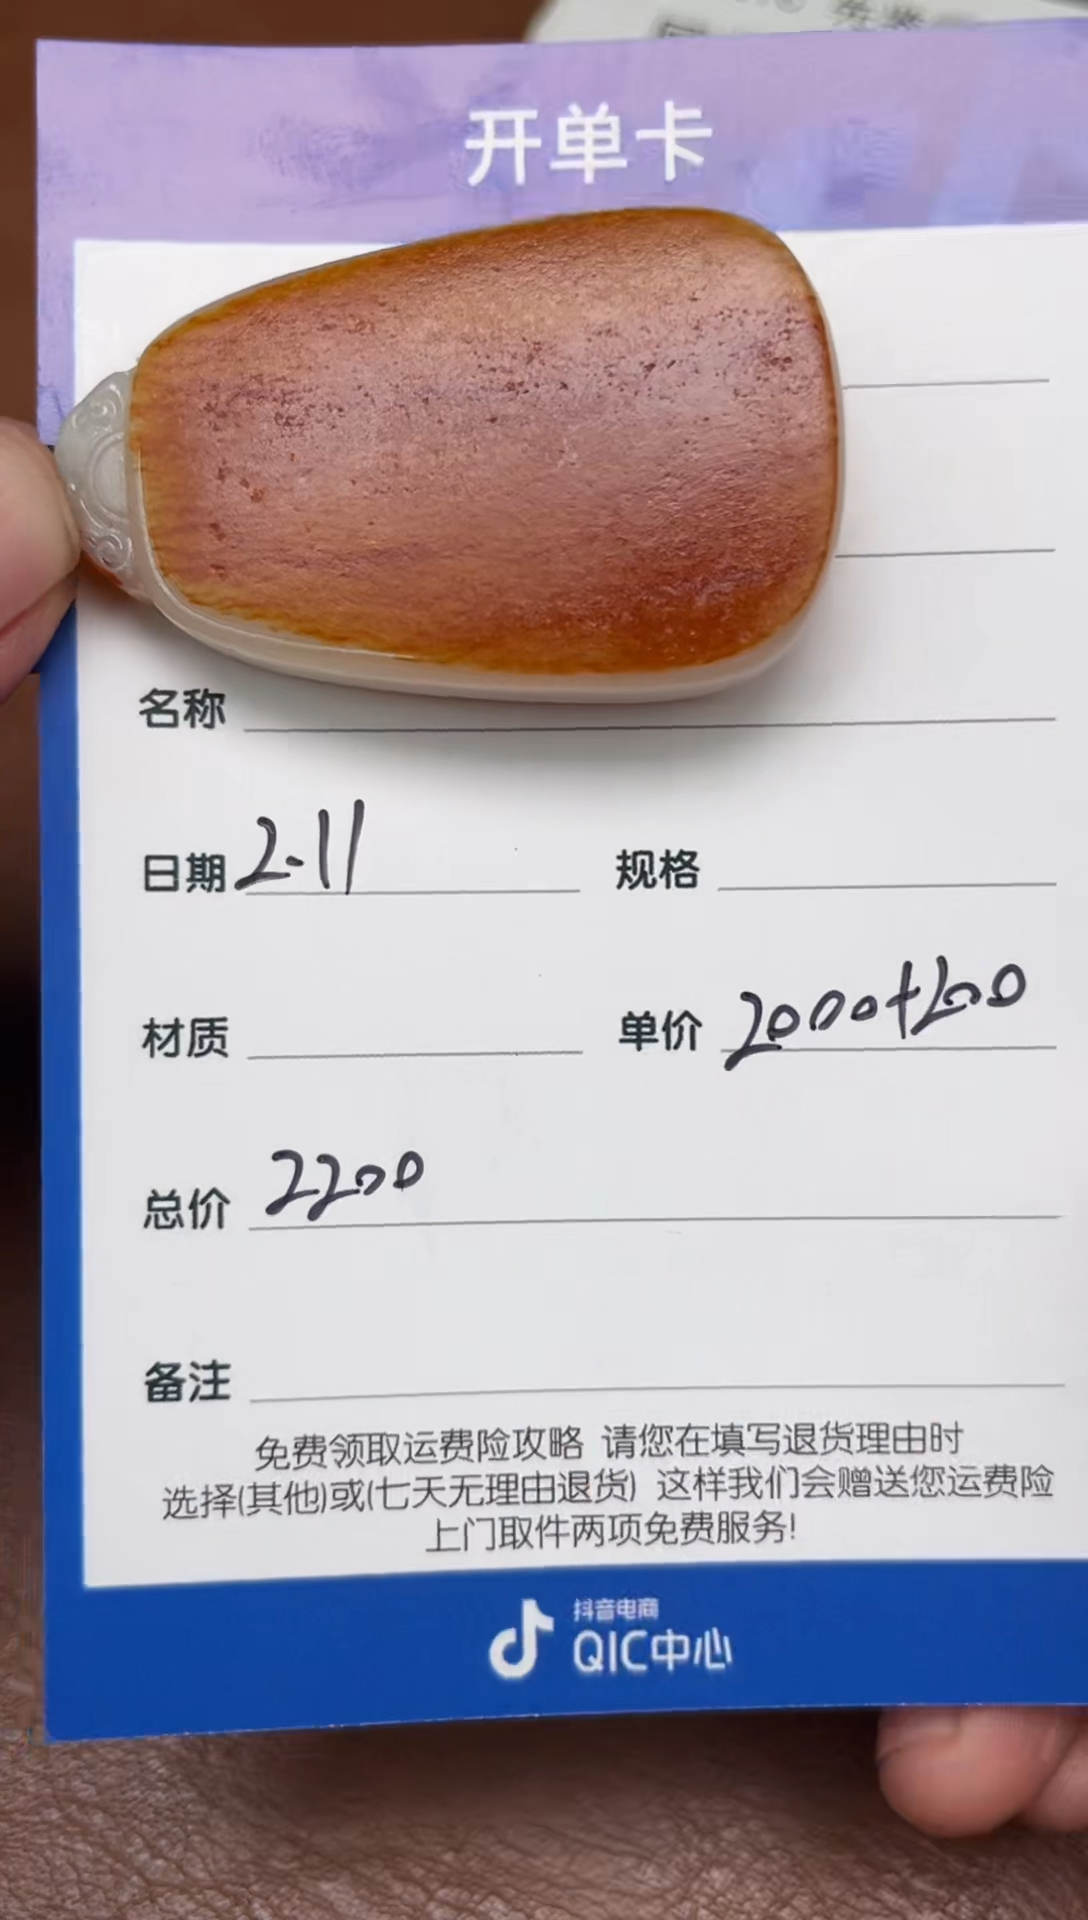 开单卡
名称
日期 2.11 规格
材质 单价 2000+200
总价 2200
备注
免费领取运费险攻略 请您在填写退货理由时
选择(其他)或(七天无理由退货) 这样我们会赠送您运费险
上门取件两项免费服务!
抖音电商
QIC中心